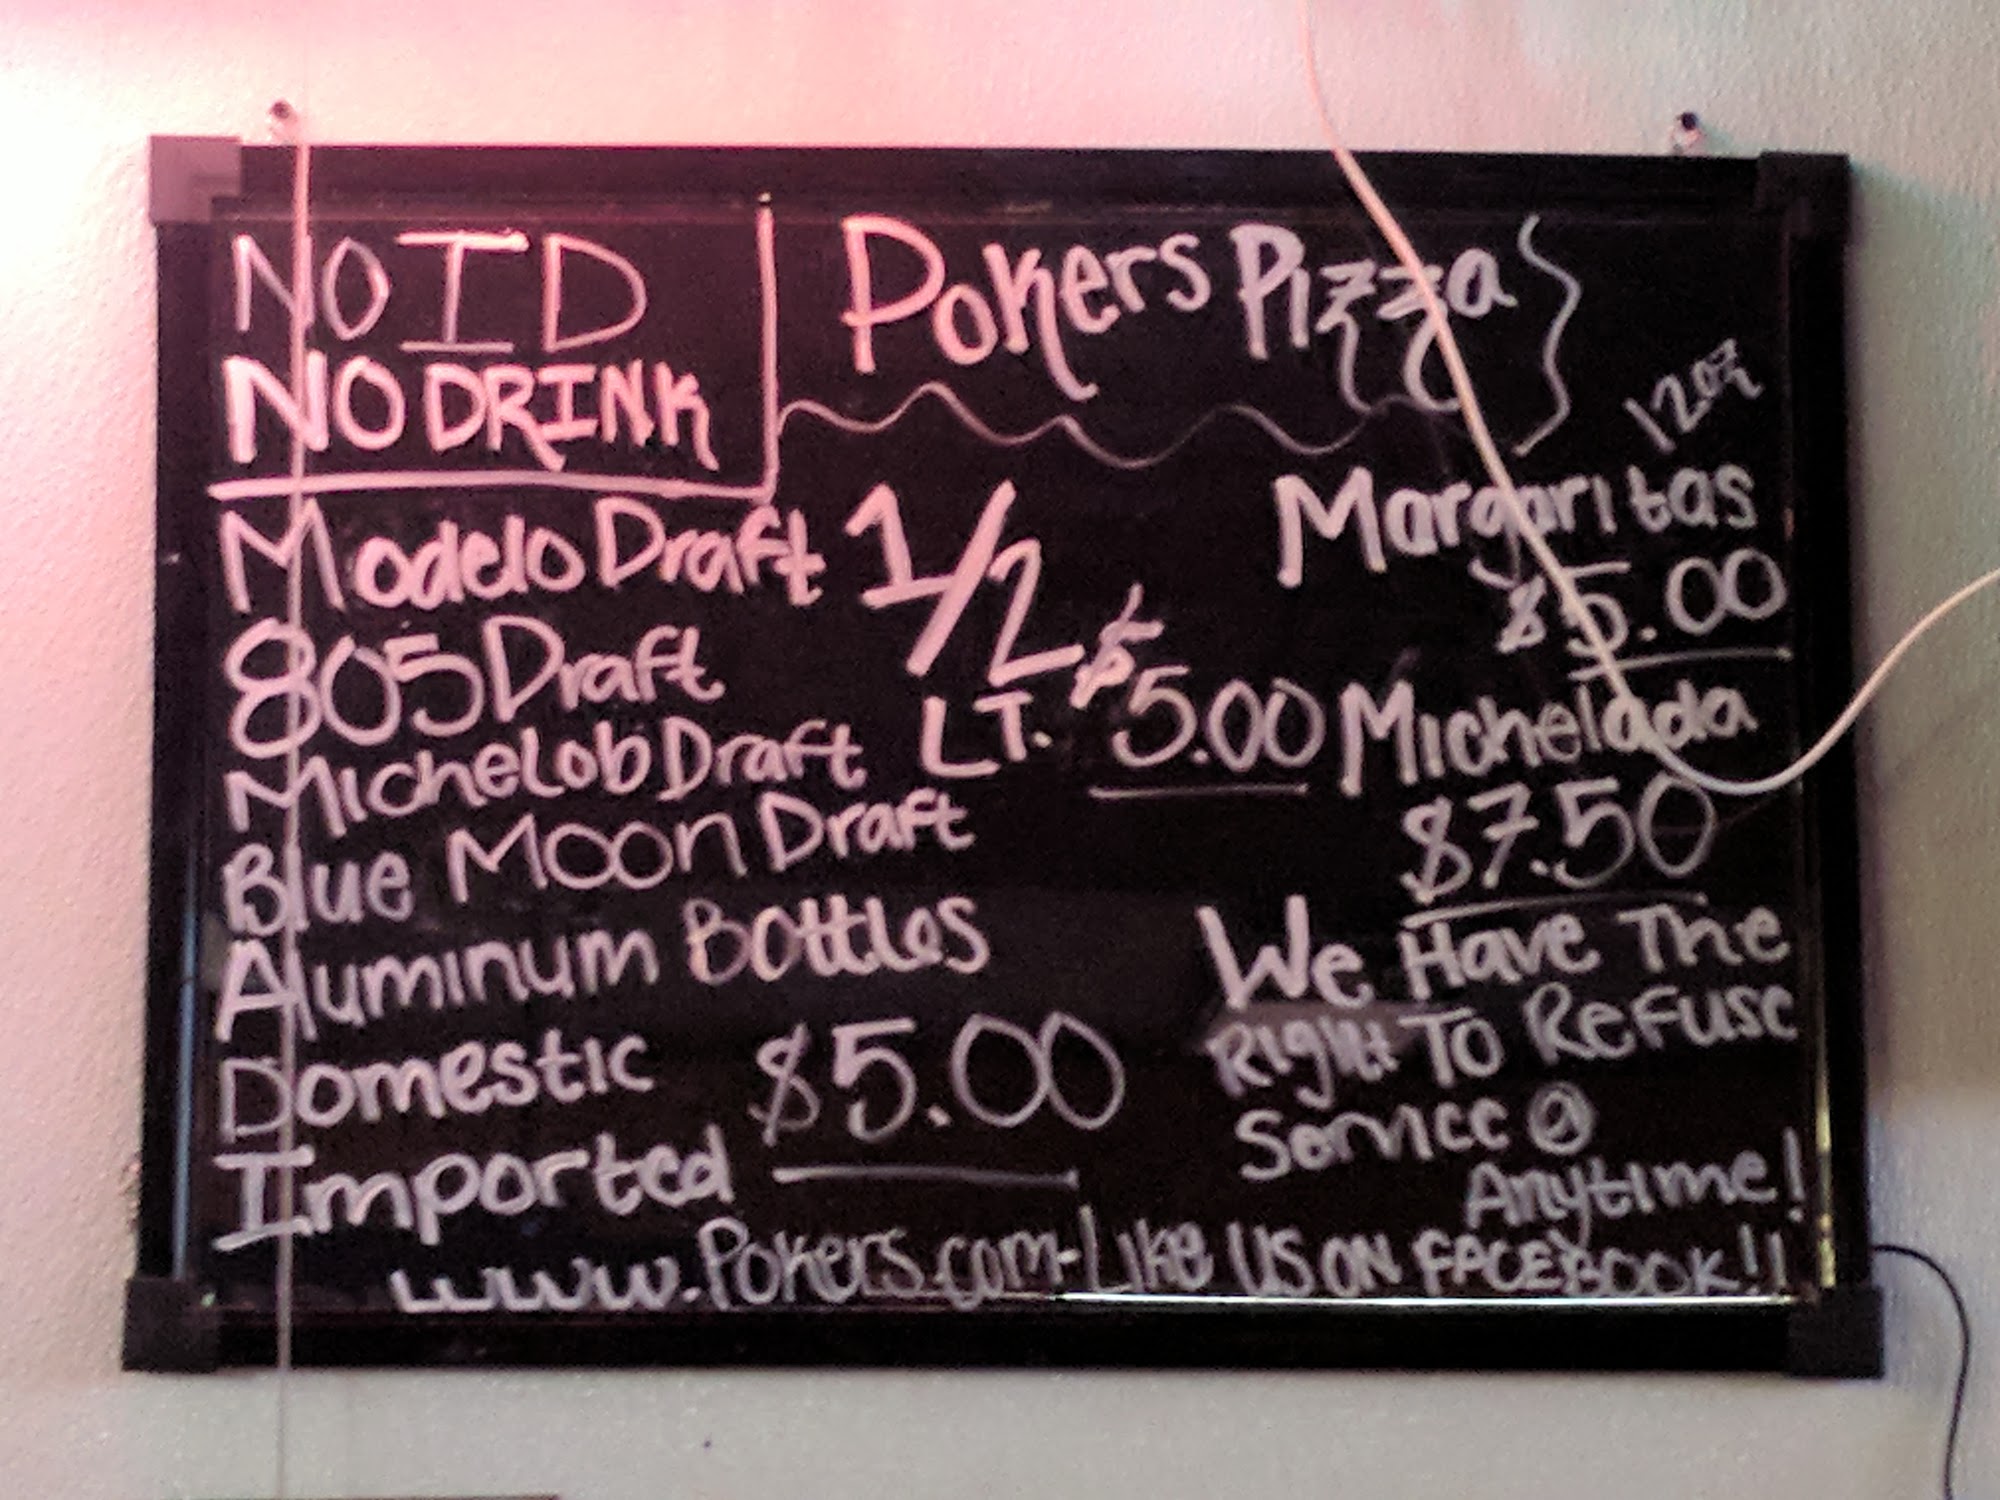 NO ID
NO DRINK
Pokers Pizza
Modelo Draft
805 Draft
Michelob Draft
Blue Moon Draft
1/2
LT. $5.00
Aluminum Bottles
Domestic
Imported
$5.00
12oz
Margaritas
$5.00
Michelada
$7.50
We Have The
Right To Refuse
Service @
Anytime!
www.Pokers.com-Like US ON FACEBOOK!!